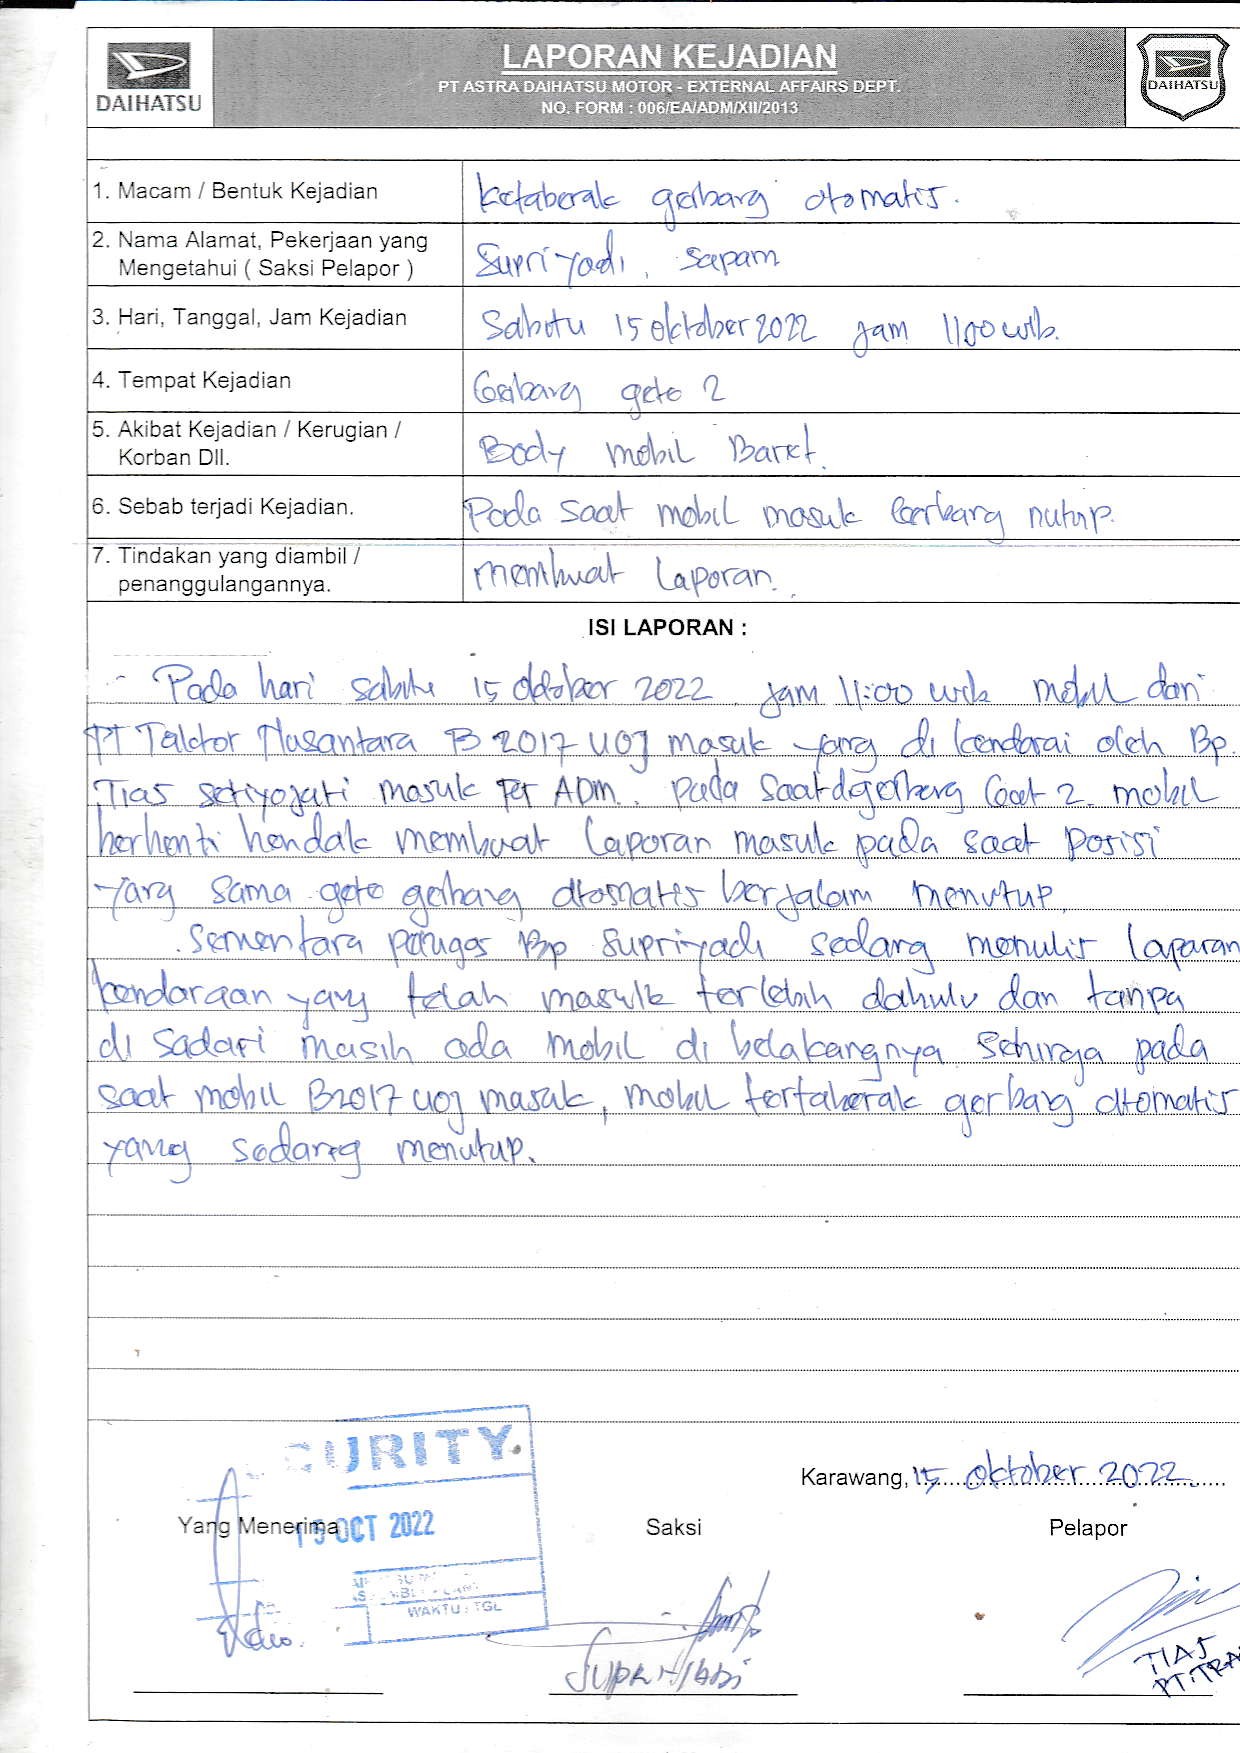 DAIHATSU
LAPORAN KEJADIAN
PT ASTRA DAIHATSU MOTOR - EXTERNAL AFFAIRS DEPT.
NO. FORM : 006/EA/ADM/XII/2013
DAIHATSU
1. Macam / Bentuk Kejadian
Ketaberak gerbang otomatis.
2. Nama Alamat, Pekerjaan yang
Mengetahui ( Saksi Pelapor )
Supriyadi, sapam
3. Hari, Tanggal, Jam Kejadian
Sabtu 15 oktober 2022 jam 1100 wib.
4. Tempat Kejadian
Gerbang gate 2
5. Akibat Kejadian / Kerugian /
Korban Dll.
Body mobil Baret.
6. Sebab terjadi Kejadian.
Pada saat mobil masuk Gerbang nutup.
7. Tindakan yang diambil /
penanggulangannya.
membuat Laporan.
ISI LAPORAN :
- Pada hari sabtu 15 oktober 2022 jam 11:00 wib mobil dari
PT Taktor Nusantara B 2017 UOJ masuk yang di kendarai oleh Bp.
Tias setiyojati masuk PT ADM. pada saat digerbang Gat 2. mobil
berhenti hendak membuat Laporan masuk pada saat posisi
yang sama gate gerbang otomatis berjalam menutup.
Sementara petugas Bp Supriyadi sedang menulis laparan
kendaraan yang telah masuk terlebih dahulu dan tanpa
di sadari masih ada mobil di belakangnya. Sehinga pada
saat mobil B 2017 UOJ masuk, mobil tertaberak gerbang otomatis
yang sedang menutup.
CURITY
Karawang, 15 oktober 2022.
Yang Menerima
OCT 2022
Saksi
Pelapor
WAKTU : TGL
SUPRIYADI
TIAS
PT.TRA